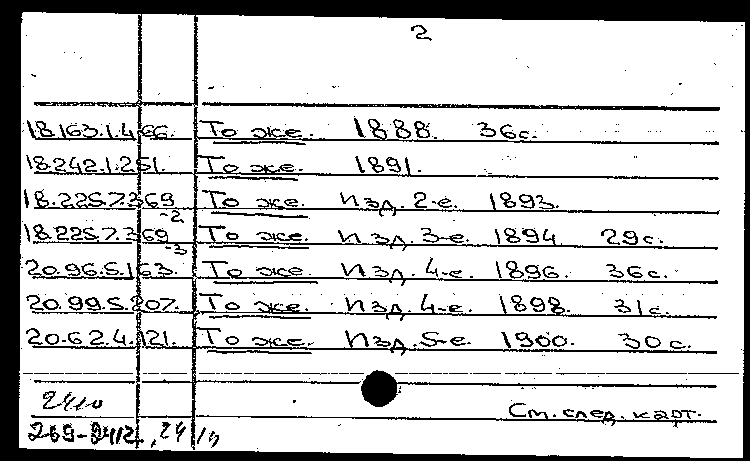 2
18.163.1.466. То же. 1888. 36с.
18.242.1.251. То же. 1891.
18.225.7.369-2 То же. Изд. 2-е. 1893.
18.225.7.369-3 То же. Изд. 3-е. 1894. 29с.
20.96.5.163. То же. Изд. 4-е. 1896. 36с.
20.99.5.207. То же. Изд. 4-е. 1898. 31с.
20.62.4.121. То же. Изд. 5-е. 1900. 30с.
См. след. карт.